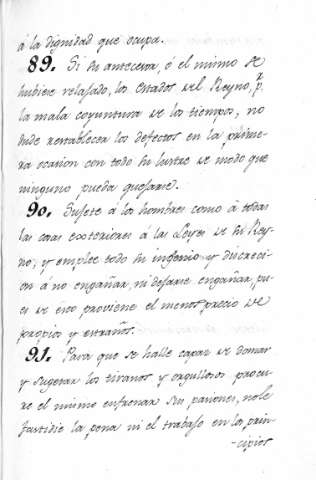 á la dignidad que ocupa.
89. Si su antecesor, ó el mismo se
hubiese relajado, los estados del Reyno, pr.
la mala coyuntura de los tiempos, no
dude restablecer los defectos en la prime-
ra ocasion con todo su lustre de modo que
ninguno pueda quejarse.
90. Sujete á los hombres como á todas
las cosas exteriores á las Leyes de su Rey-
no, y emplee todo su ingenio y discreci-
on á no engañar, ni dejarse engañar, pu-
es de esto proviene el menosprecio de
propios y estraños.
91. Para que se halle capaz de domar
y sugetar los tiranos y orgullosos procu-
re el mismo enfrenar sus pasiones, no le
fastidie la pena ni el trabajo en los prin-
-cipios